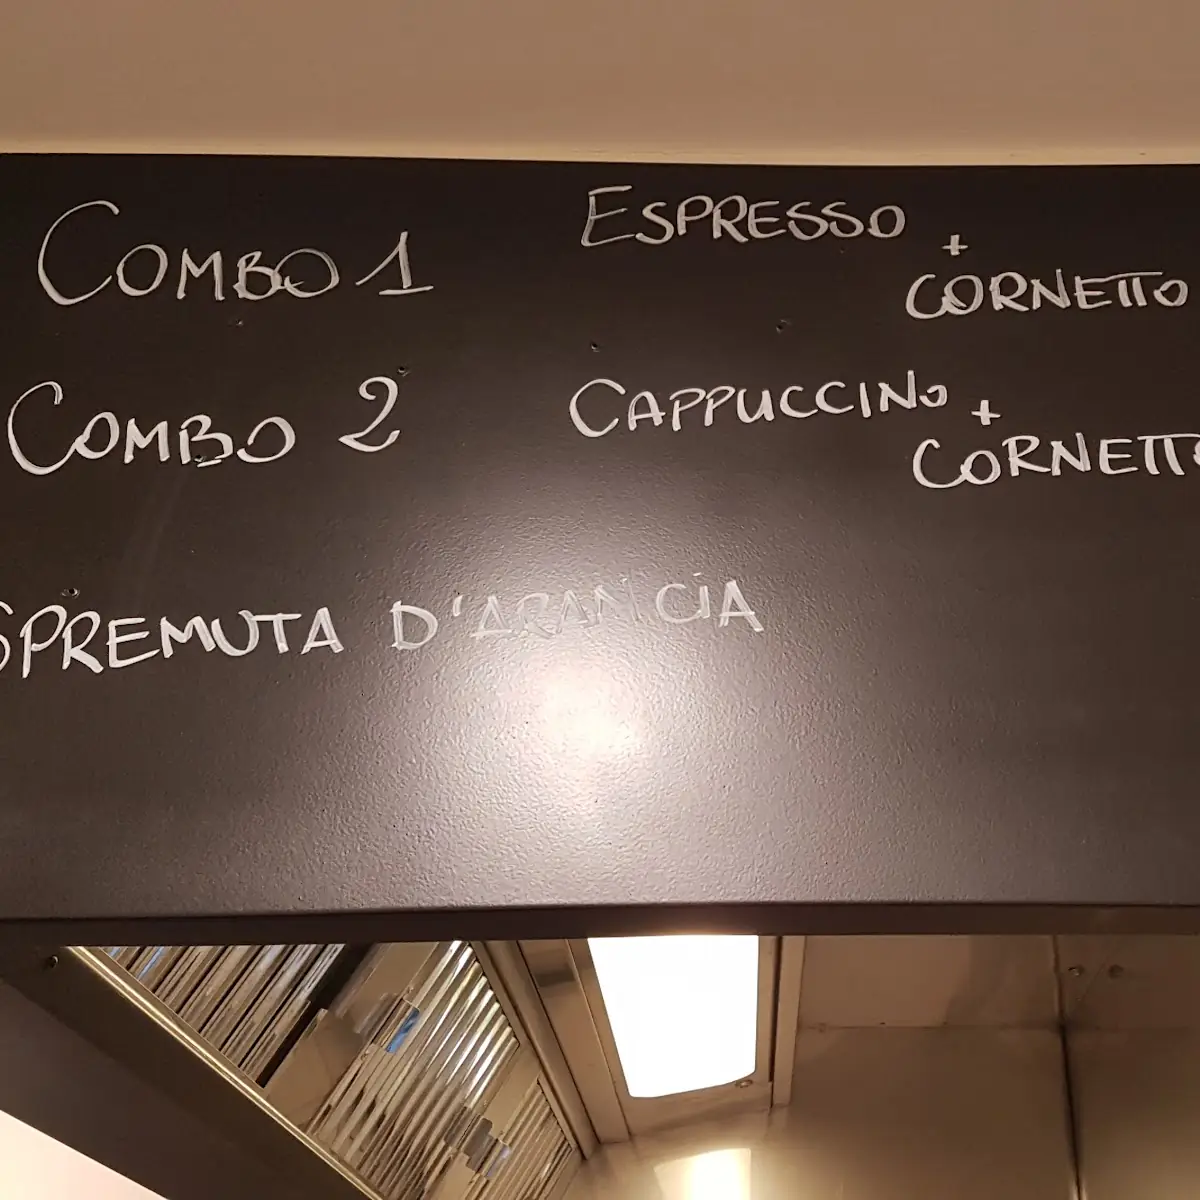 COMBO 1
ESPRESSO
+
CORNETTO
COMBO 2
CAPPUCCINO
+
CORNETTO
SPREMUTA D'ARANCIA